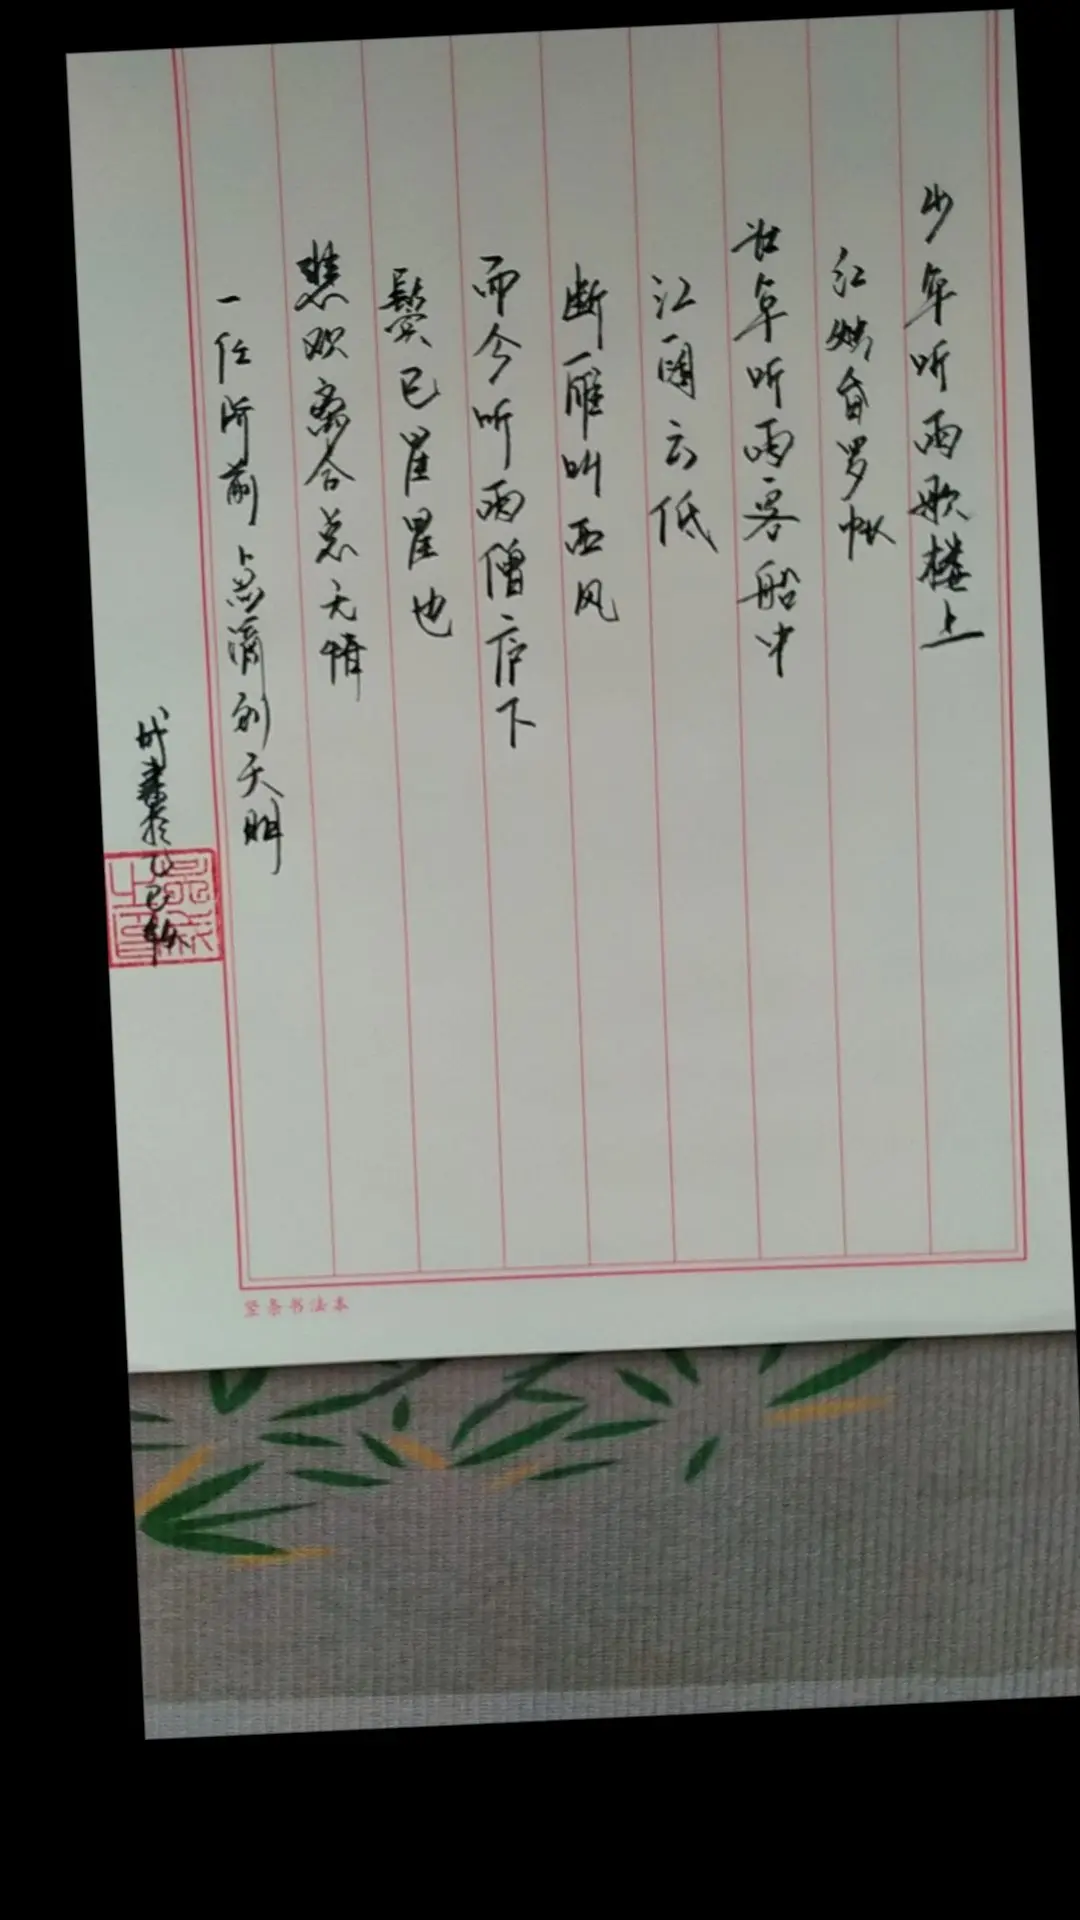 少年听雨歌楼上
红烛昏罗帐
壮年听雨客船中
江阔云低
断雁叫西风
而今听雨僧庐下
鬓已星星也
悲欢离合总无情
一任阶前点滴到天明
书于乙巳秋
竖条书法本